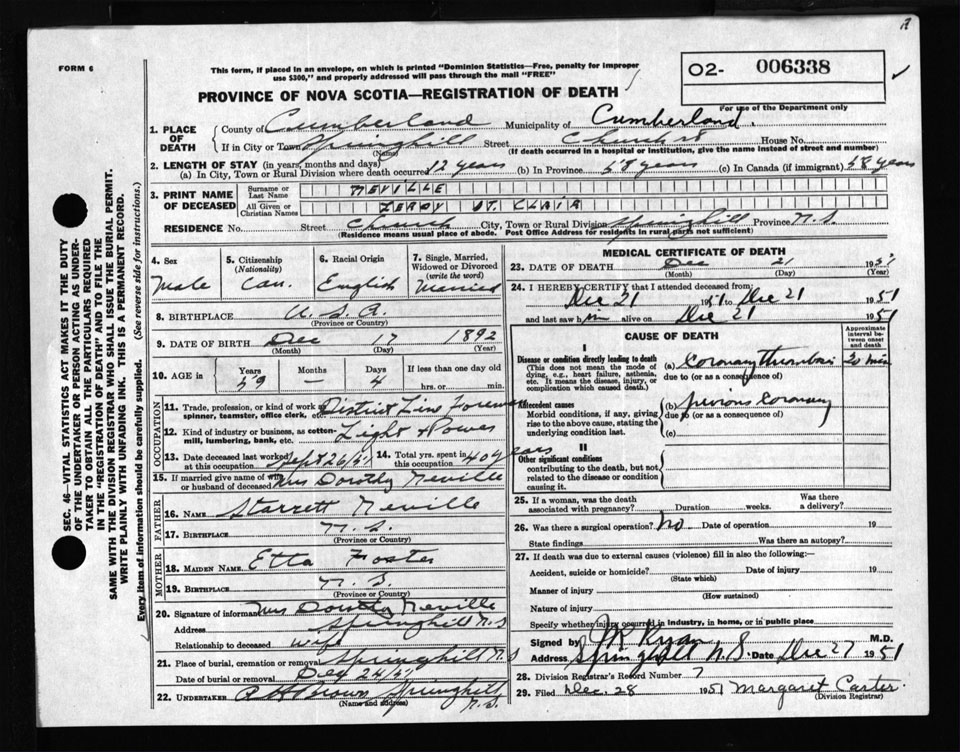 A
FORM 6
This form, if placed in an envelope, on which is printed "Dominion Statistics—Free, penalty for improper
use $300," and properly addressed will pass through the mail "FREE"
02- 006338
For use of the Department only
PROVINCE OF NOVA SCOTIA—REGISTRATION OF DEATH
1. PLACE OF DEATH County of Cumberland Municipality of Cumberland
If in City or Town Springhill Street Church St House No.
(Name) (If death occurred in a hospital or institution, give the name instead of street and number)
2. LENGTH OF STAY (in years, months and days)
(a) In City, Town or Rural Division where death occurred 12 years (b) In Province 58 years (c) In Canada (if immigrant) 58 years
3. PRINT NAME OF DECEASED Surname or Last Name NEVILLE
All Given or Christian Names LEROY ST. CLAIR
RESIDENCE No. Street Church City, Town or Rural Division Springhill Province N.S
(Residence means usual place of abode. Post Office Address for residents in rural parts not sufficient)
SEC. 46—VITAL STATISTICS ACT MAKES IT THE DUTY
OF THE UNDERTAKER OR PERSON ACTING AS UNDER-
TAKER TO OBTAIN ALL THE PARTICULARS REQUIRED
IN THE "REGISTRATION OF DEATH" AND TO FILE THE
SAME WITH THE DIVISION REGISTRAR WHO SHALL ISSUE THE BURIAL PERMIT.
WRITE PLAINLY WITH UNFADING INK. THIS IS A PERMANENT RECORD.
Every item of information should be carefully supplied. (See reverse side for instructions.)
4. Sex Male
5. Citizenship (Nationality) Can.
6. Racial Origin English
7. Single, Married, Widowed or Divorced (write the word) Married
8. BIRTHPLACE U.S.A.
(Province or Country)
9. DATE OF BIRTH Dec 17 1892
(Month) (Day) (Year)
10. AGE in Years 59 Months — Days 4 If less than one day old
hrs. or min.
OCCUPATION
11. Trade, profession, or kind of work as spinner, teamster, office clerk, etc. District Line Foreman
12. Kind of industry or business, as cotton-mill, lumbering, bank, etc. Light & Power
13. Date deceased last worked at this occupation Sept 26/51 14. Total yrs. spent in this occupation 40 years
15. If married give name of wife or husband of deceased Mrs Dorothy Neville
FATHER
16. NAME Starrett Neville
17. BIRTHPLACE N.S.
(Province or Country)
MOTHER
18. MAIDEN NAME Etta Foster
19. BIRTHPLACE N.S.
(Province or Country)
20. Signature of informant Mrs Dorothy Neville
Address Springhill N.S
Relationship to deceased wife
21. Place of burial, cremation or removal Springhill N.S
Date of burial or removal Dec 24/51
22. UNDERTAKER Brown Springhill N.S.
(Name and address)
MEDICAL CERTIFICATE OF DEATH
23. DATE OF DEATH Dec 21 1951
(Month) (Day) (Year)
24. I HEREBY CERTIFY that I attended deceased from:
Dec 21 1951 to Dec 21 1951
and last saw him alive on Dec 21 1951
CAUSE OF DEATH
Approximate interval between onset and death
I
Disease or condition directly leading to death
(This does not mean the mode of dying, e.g., heart failure, asthenia, etc. It means the disease, injury, or complication which caused death.)
(a) Coronary thrombosis 20 min
due to (or as a consequence of)
Antecedent causes
Morbid conditions, if any, giving rise to the above cause, stating the underlying condition last.
(b) previous coronary
due to (or as a consequence of)
(c)
II
Other significant conditions
contributing to the death, but not related to the disease or condition causing it.
25. If a woman, was the death associated with pregnancy? Duration weeks. Was there a delivery?
26. Was there a surgical operation? No Date of operation 19
State findings Was there an autopsy?
27. If death was due to external causes (violence) fill in also the following:—
Accident, suicide or homicide? Date of injury 19
(State which)
Manner of injury
(How sustained)
Nature of injury
Specify whether injury occurred in industry, in home, or in public place
Signed by Ryan M.D.
Address Springhill N.S. Date Dec 27 1951
28. Division Registrar's Record Number 7
29. Filed Dec. 28 1951 Margaret Carter.
(Division Registrar)